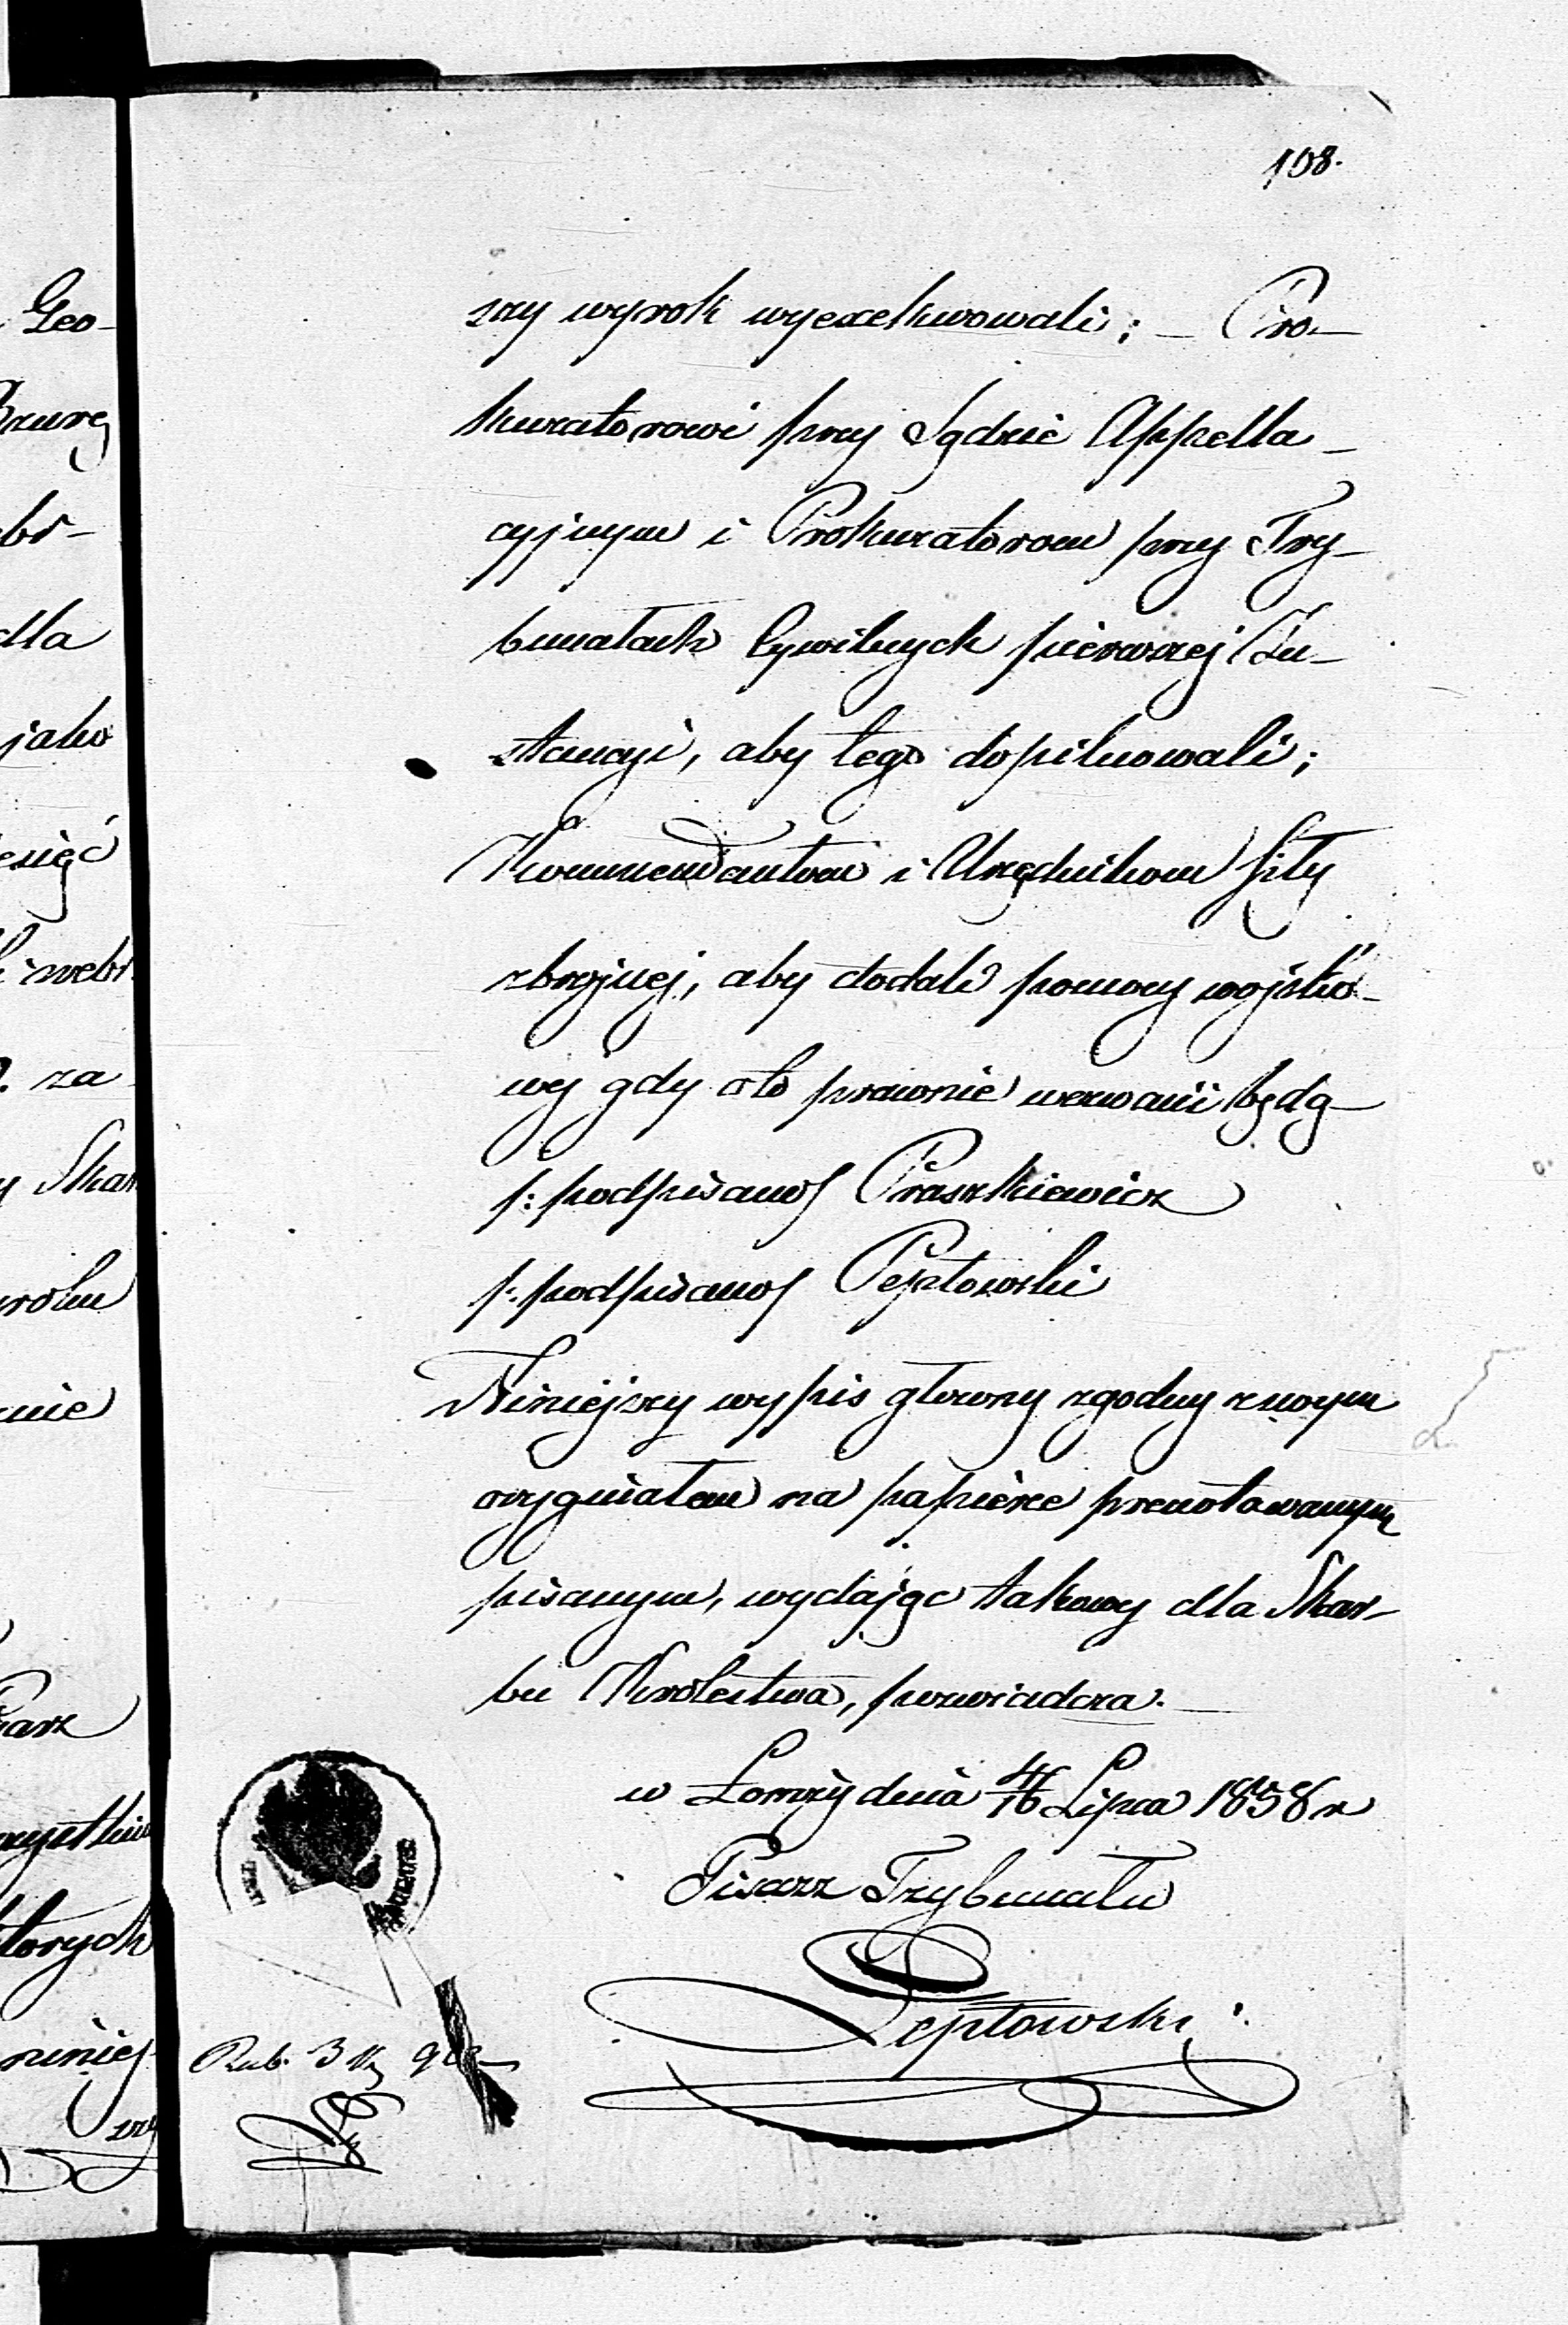 108.
szy wyrok wyexekwowali; – Pro-
kuratorowi przy Sądzie Appella-
cyjnym i Prokuratorom przy Try-
bunałach Cywilnych pierwszej In-
stancyi, aby tego dopilnowali;
Kommendantom i Urzędnikom siły
zbrojnej, aby dodali pomocy wojsko-
wej gdy oto prawnie wezwani będą –
/: podpisano/ Praszkiewicz
/: podpisano/ Peptowski
Niniejszy wypis główny zgodny z swoym
oryginałem na papierze prenotowanym
pisanym, wydając takowy dla Skar-
bu Krolestwa, poswiadcza. –
w Łomży dnia 4/16 Lipca 1858 r
Pisarz Trybunału
Peptowski
Rub. 3 k
Geo-
dla
jako
za
Skar
wroku
nie
ktorych
niniej
szy